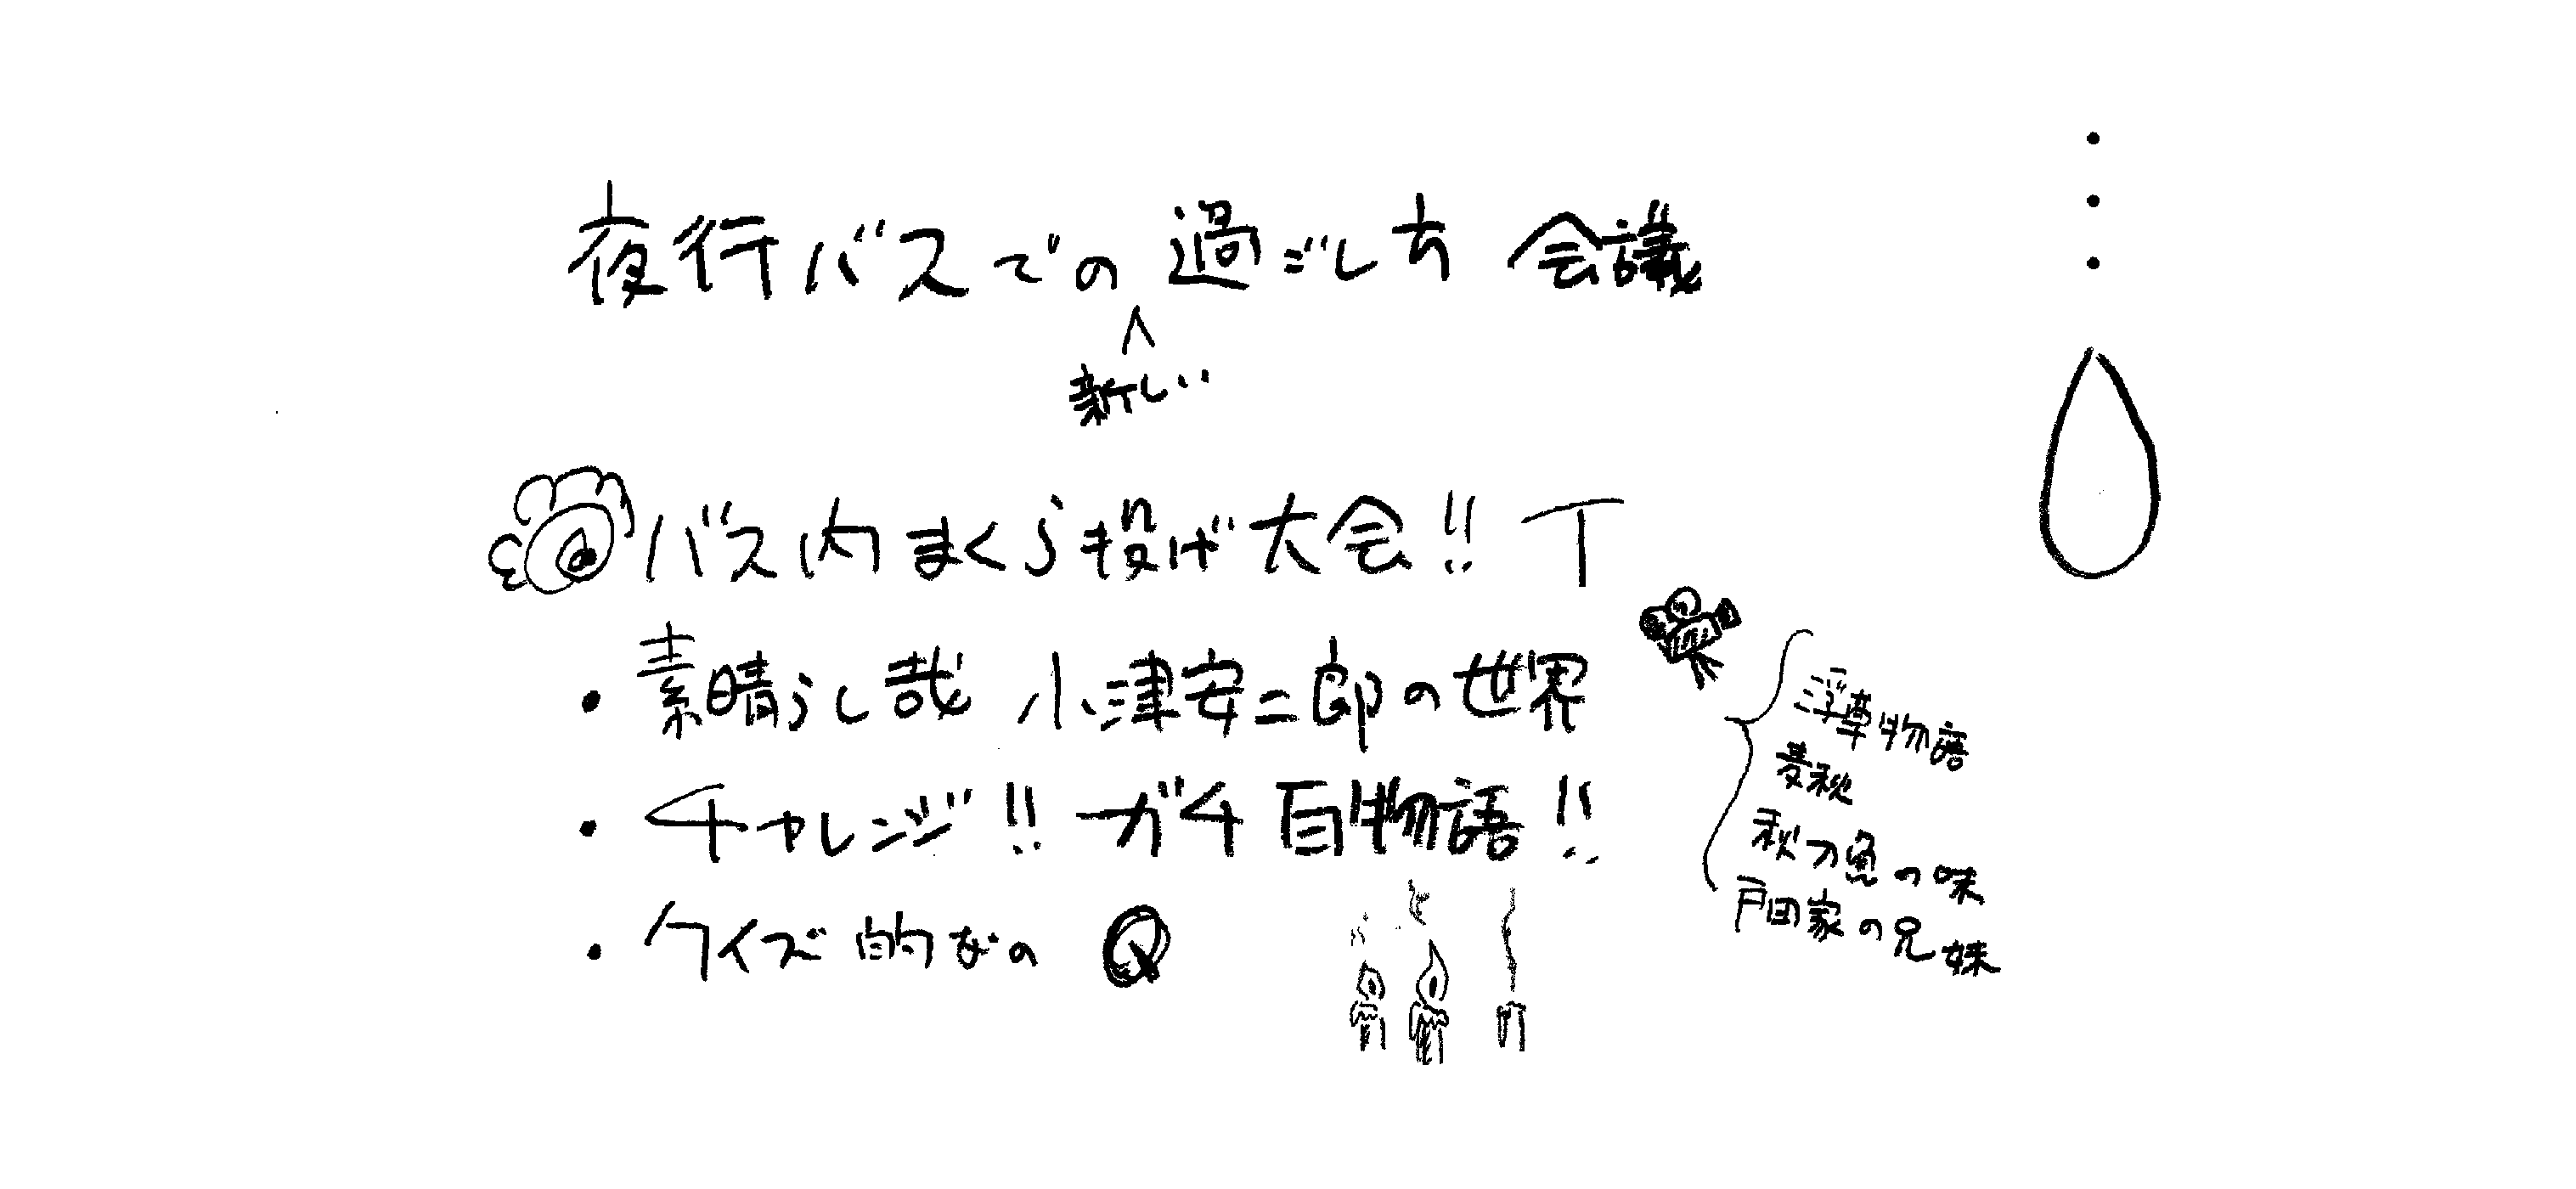 夜行バスでの過ごし方 会議
新しい
バス内まくら投げ大会!!
・素晴らし哉 小津安二郎の世界
浮草物語
麦秋
秋刀魚の味
戸田家の兄妹
・チャレンジ!! ガチ百物語!!
・クイズ的なの Q